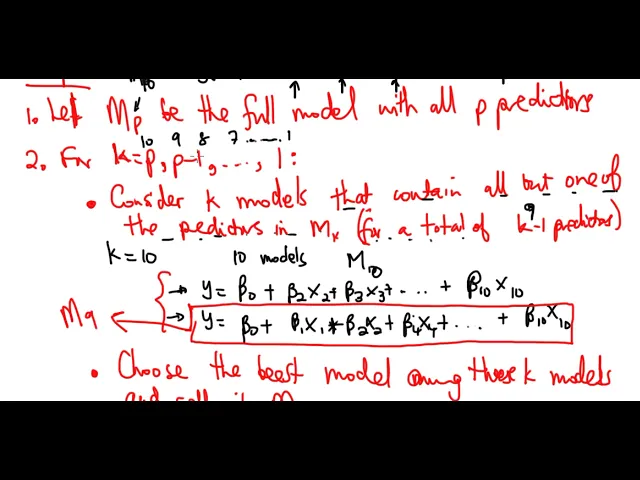 1. Let Mp be the full model with all p predictors
10 9 8 7 ...... 1
2. For k=p, p-1, ..., 1:
• Consider k models that contain all but one of
the predictors in Mk (for a total of k-1 predictors)
9
k = 10 10 models M10
→ y = β0 + β2X2 + β3X3 + ... + β10X10
M9 → y = β0 + β1X1 + β2X2 + β4X4 + ... + β10X10
• Choose the best model among these k models
and call it